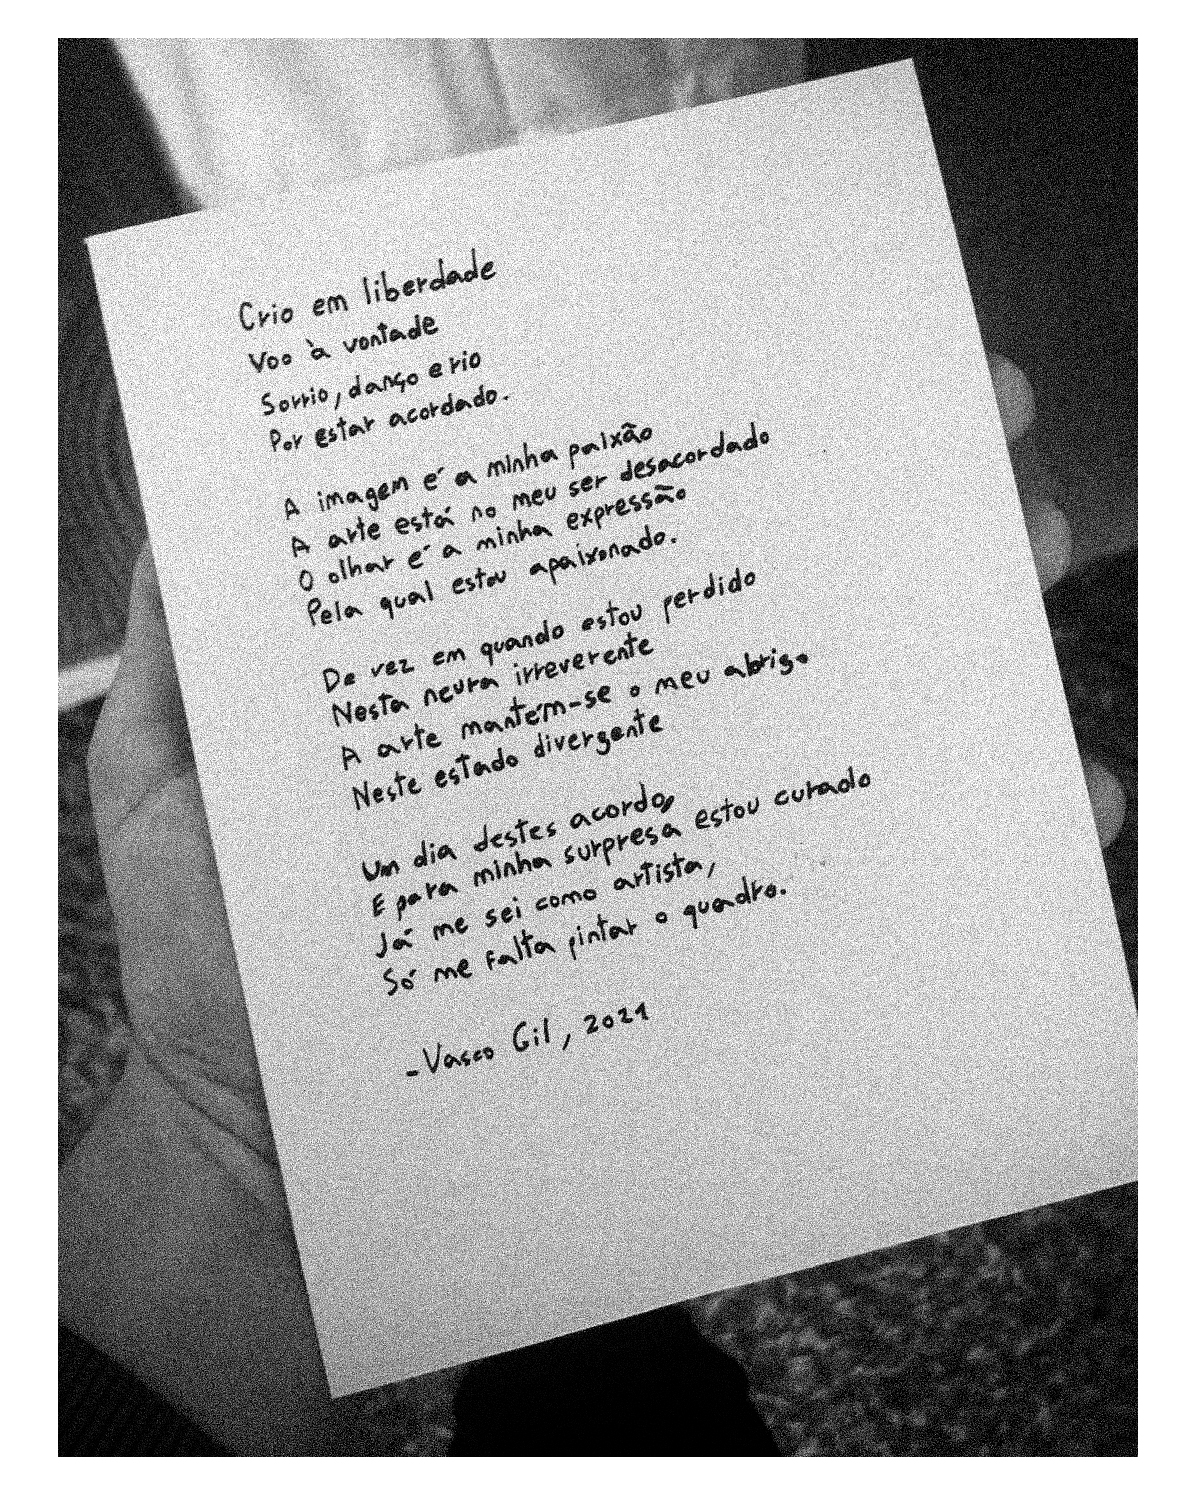 Crio em liberdade
Voo à vontade
Sorrio, danço e rio
Por estar acordado.
A imagem é a minha paixão
A arte está no meu ser desacordado
O olhar é a minha expressão
Pela qual estou apaixonado.
De vez em quando estou perdido
Nesta neura irreverente
A arte mantém-se o meu abrigo
Neste estado divergente
Um dia destes acordo,
E para minha surpresa estou curado
Já me sei como artista,
Só me falta pintar o quadro.
-Vasco Gil, 2021